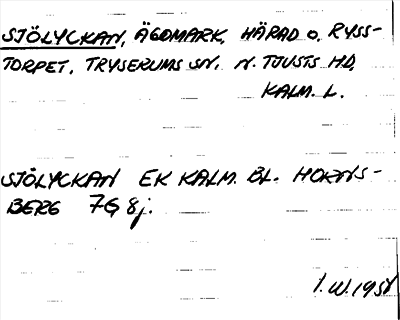 SJÖLYCKAN, ÄGOMARK, HÄRAD o. RYSS-
TORPET, TRYSERUMS SN, N. TJUSTS HD,
KALM. L.
SJÖLYCKAN EK KALM. BL. HORNS-
BERG 7G 8j.
I.W. 1958